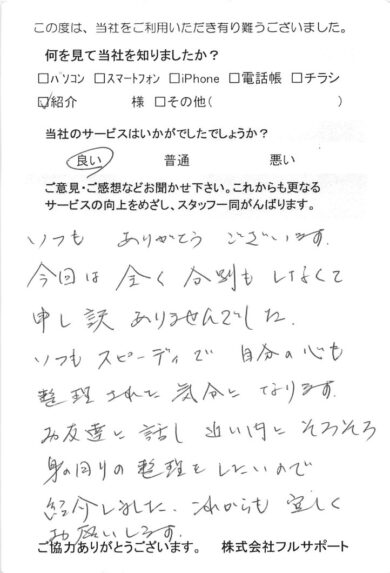 この度は、当社をご利用いただき有り難うございました。
何を見て当社を知りましたか？
□パソコン □スマートフォン □iPhone □電話帳 □チラシ
☑紹介　　　様 □その他(　　　　　　　)
当社のサービスはいかがでしたでしょうか？
良い　　普通　　悪い
ご意見・ご感想などお聞かせ下さい。これからも更なる
サービスの向上をめざし、スタッフ一同がんばります。
いつも ありがとう ございます。
今回は 全く 分別も しなくて
申し訳 ありませんでした。
いつも スピーディで 自分の心も
整理された 気分に なります。
お友達に 話し 近い内に そろそろ
身の回りの 整理を したいので
紹介しました。これからも 宜しく
お願いします。
ご協力ありがとうございます。　株式会社フルサポート